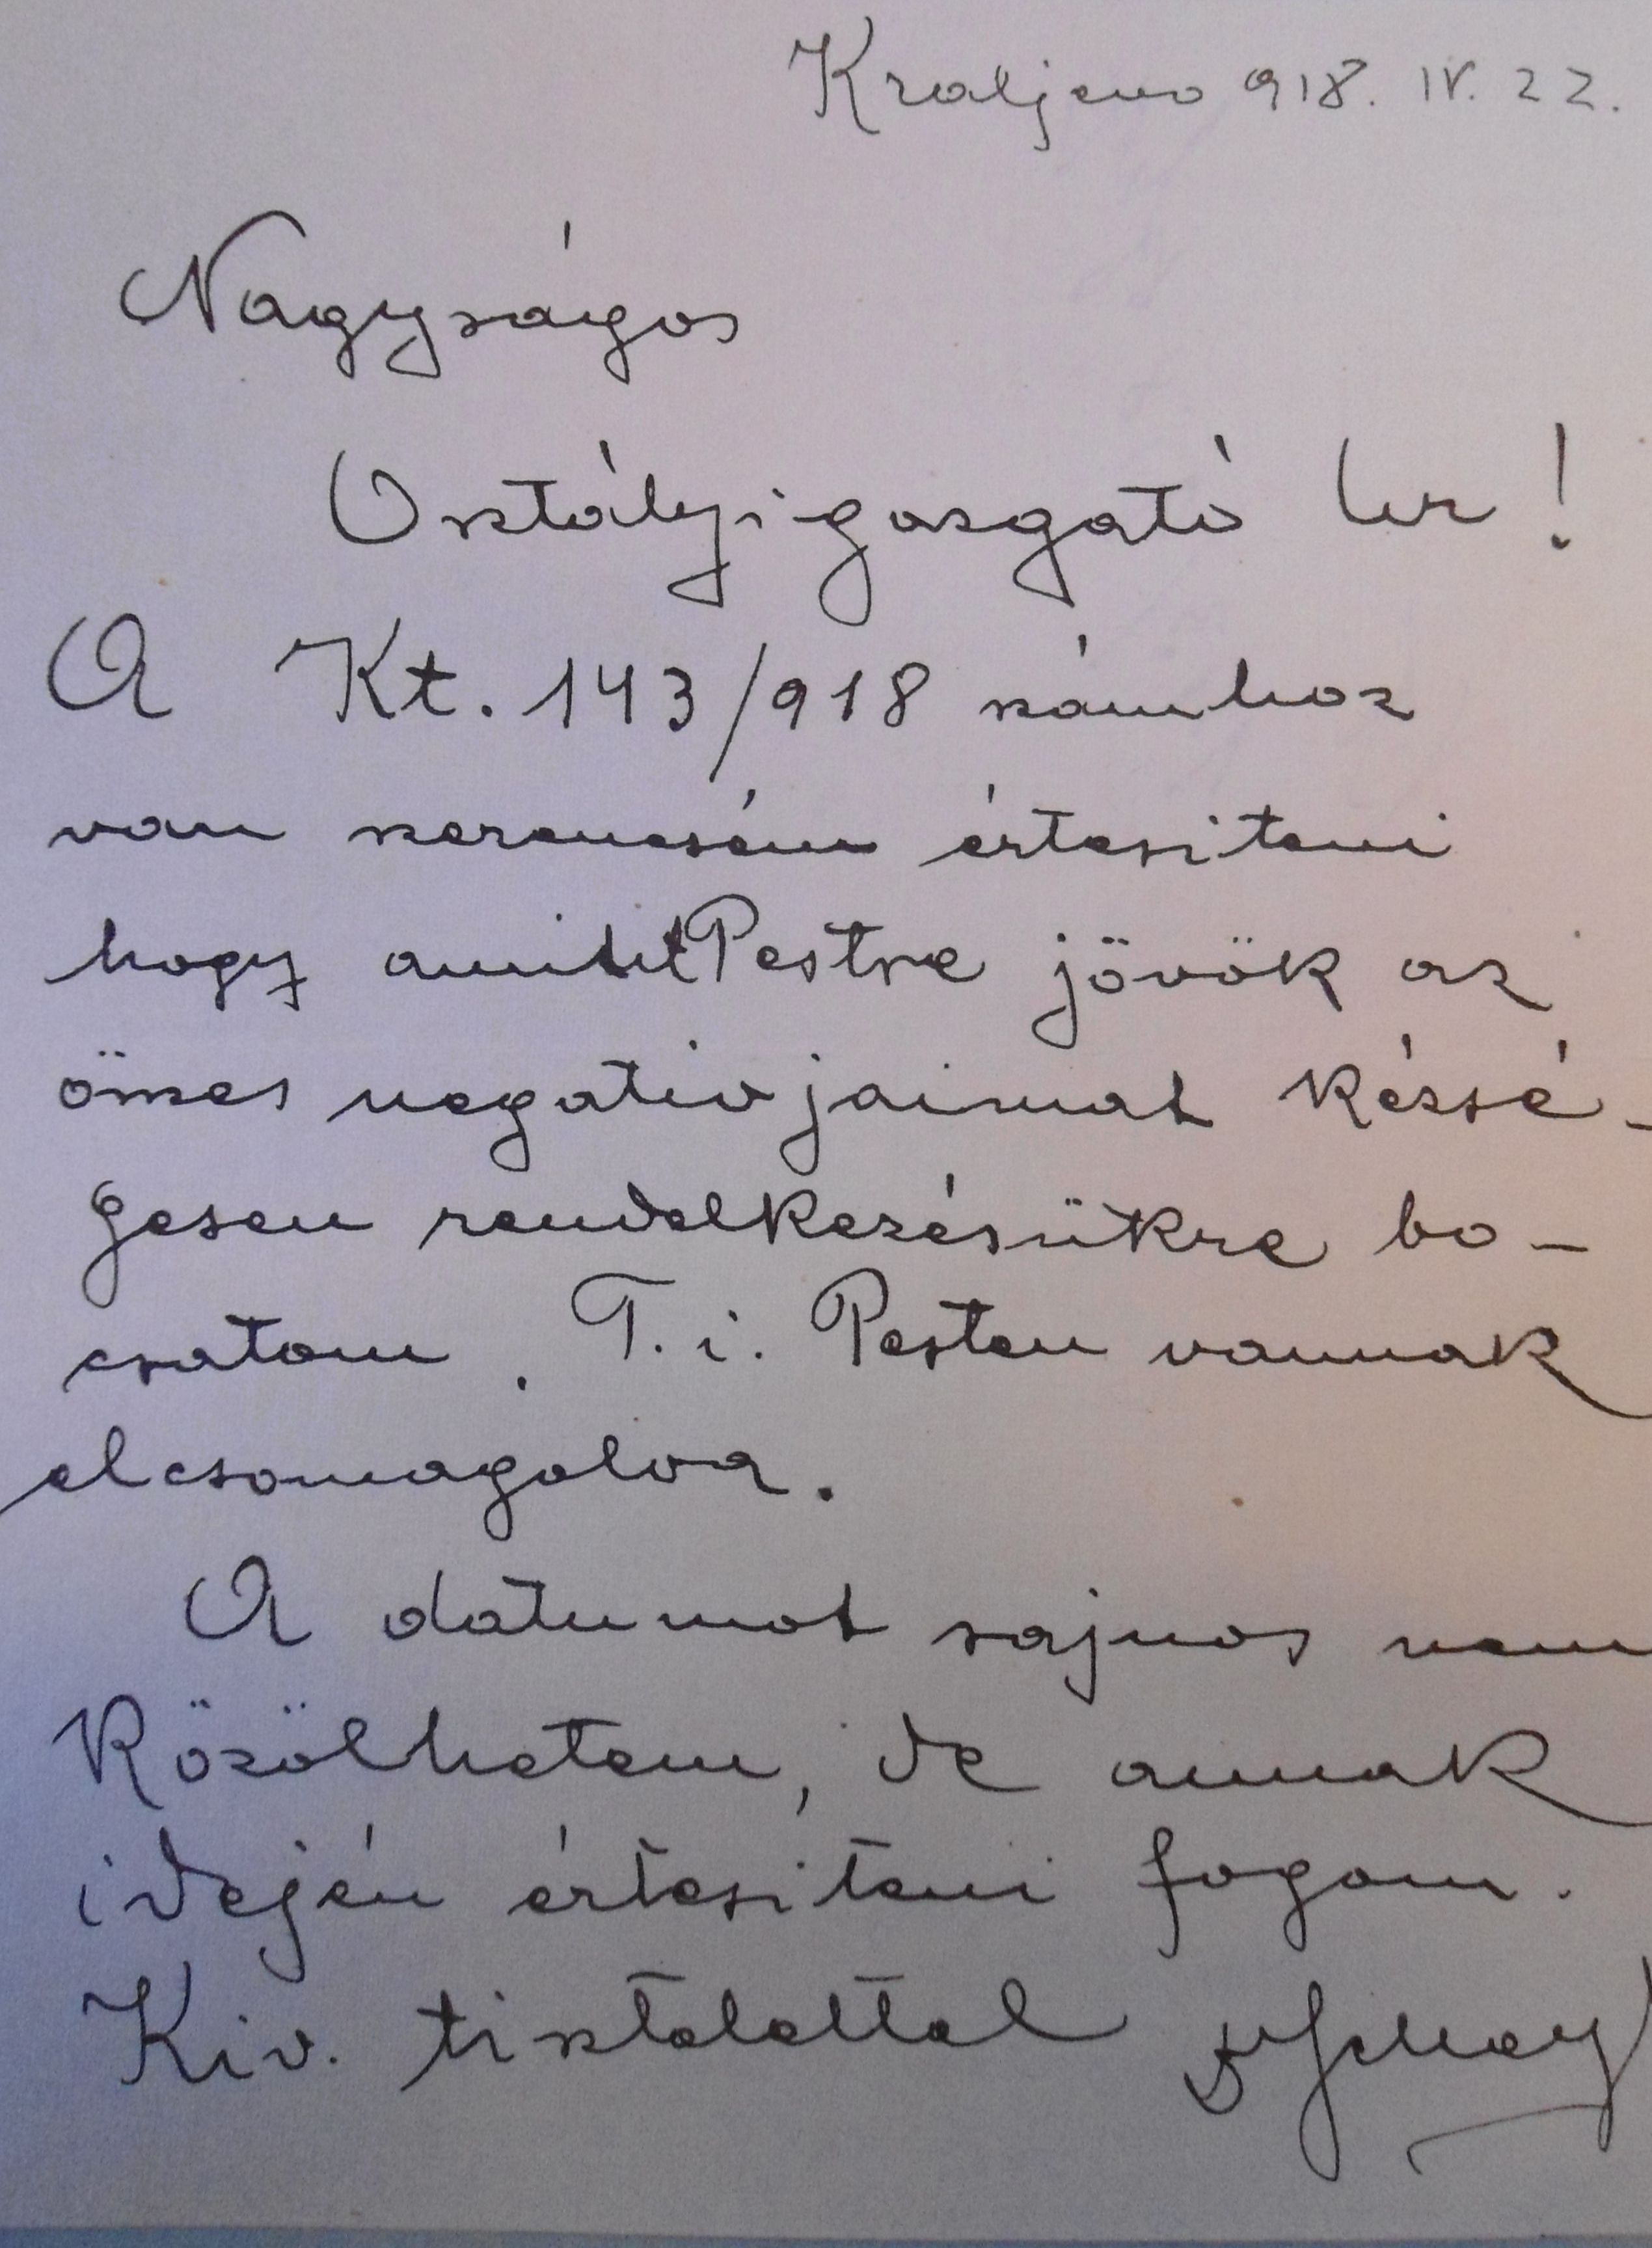 Kraljevo 918. IV. 22.
Nagyságos
Osztályigazgató Ur!
A Kt. 143/918 számhoz
van szerencsém értesiteni
hogy amint Pestre jövök az
ömzes negativjaimat készsé-
gesen rendelkezésükre bo-
csatom. T. i. Pesten vannak
elcsomagolva.
A datumot sajnos nem
közölhetem, de annak
idején értesiteni fogom.
Kiv. tisztelettel